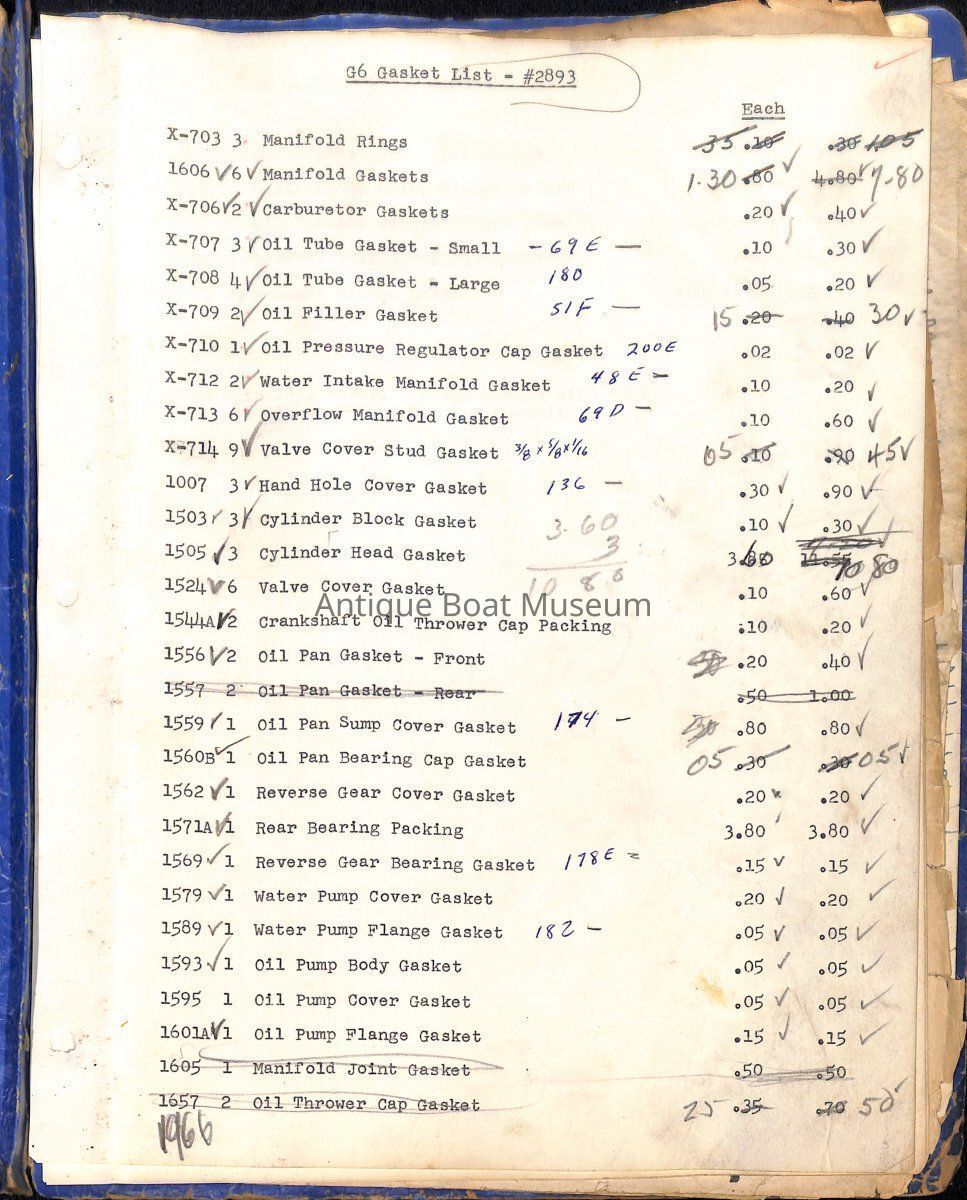 G6 Gasket List - #2893
Each
X-703 3 Manifold Rings 35 .10 .30 105
1606 √ 6 √ Manifold Gaskets 1.30 .80 √ 4.80 √ 7.80
X-706 √ 2 √ Carburetor Gaskets .20 √ .40 √
X-707 3 √ Oil Tube Gasket - Small - 69E — .10 .30 √
X-708 4 √ Oil Tube Gasket - Large 180 .05 .20 √
X-709 2 √ Oil Filler Gasket 51F — 15 .20 .40 30 √
X-710 1 √ Oil Pressure Regulator Cap Gasket 200E .02 .02 √
X-712 2 √ Water Intake Manifold Gasket 48E - .10 .20 √
X-713 6 √ Overflow Manifold Gasket 69D - .10 .60 √
X-714 9 √ Valve Cover Stud Gasket 3/8 x 5/8 x 1/16 05 .10 .90 45 √
1007 3 √ Hand Hole Cover Gasket 136 - .30 √ .90 √
1503 √ 3 √ Cylinder Block Gasket 3.60 .10 √ .30 √
3
1505 √ 3 Cylinder Head Gasket 3.60 11.55 10 80
10 80
1524 √ 6 Valve Cover Gasket .10 .60 √
Antique Boat Museum
1544A √ 2 Crankshaft Oil Thrower Cap Packing .10 .20 √
1556 √ 2 Oil Pan Gasket - Front 50 .20 .40 √
1557 2 Oil Pan Gasket - Rear .50 1.00
1559 √ 1 Oil Pan Sump Cover Gasket 174 - .80 .80 √
1560B √ 1 Oil Pan Bearing Cap Gasket 05 .30 .30 05 √
1562 √ 1 Reverse Gear Cover Gasket .20 .20 √
1571A √ 1 Rear Bearing Packing 3.80 3.80 √
1569 √ 1 Reverse Gear Bearing Gasket 178E = .15 √ .15 √
1579 √ 1 Water Pump Cover Gasket .20 √ .20 √
1589 √ 1 Water Pump Flange Gasket 182 - .05 √ .05 √
1593 √ 1 Oil Pump Body Gasket .05 √ .05 √
1595 1 Oil Pump Cover Gasket .05 √ .05 √
1601A √ 1 Oil Pump Flange Gasket .15 √ .15 √
1605 1 Manifold Joint Gasket .50 .50
1657 2 Oil Thrower Cap Gasket 25 .35 .70 50 √
1966